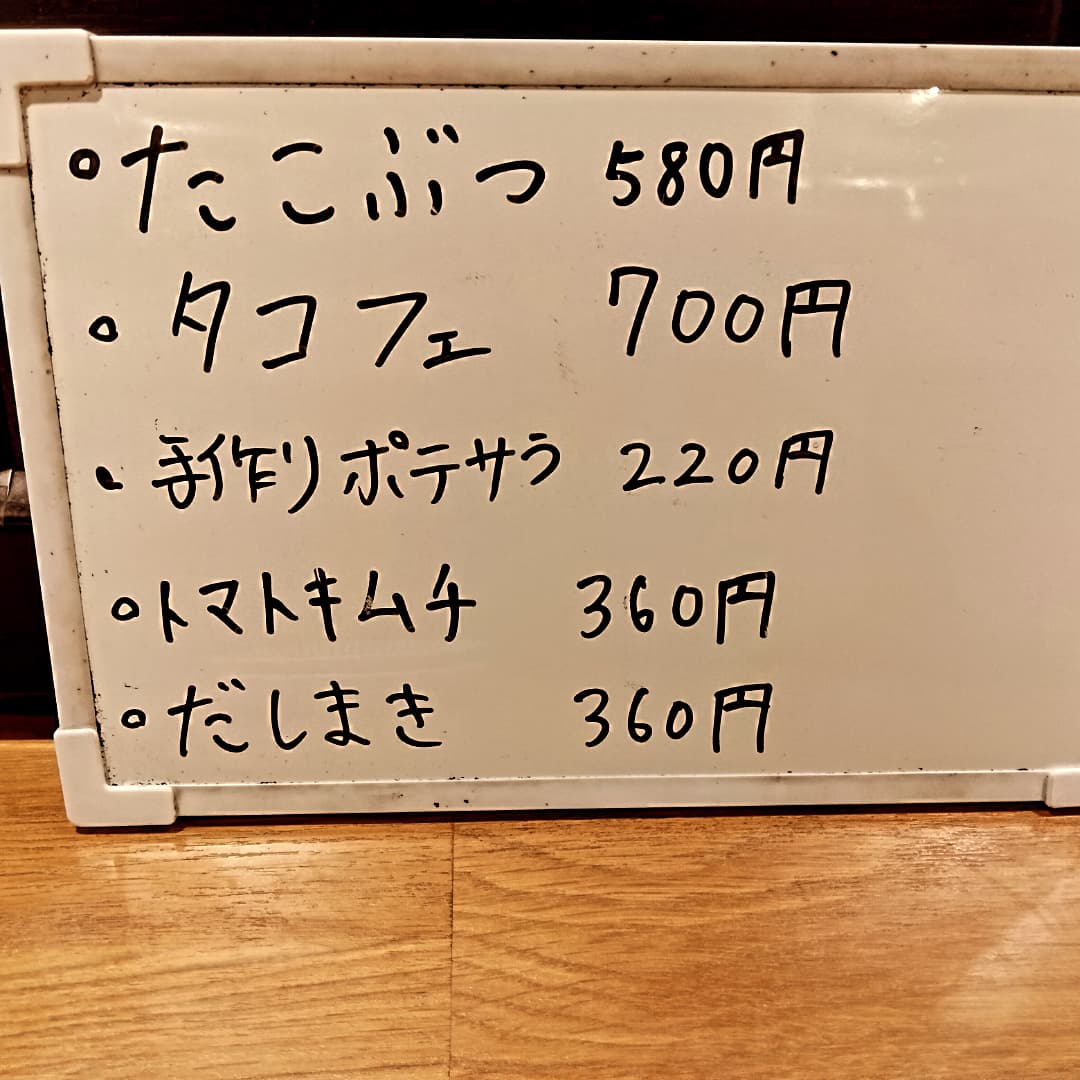 。たこぶつ 580円
。タコフェ 700円
・手作りポテサラ 220円
。トマトキムチ 360円
。だしまき 360円